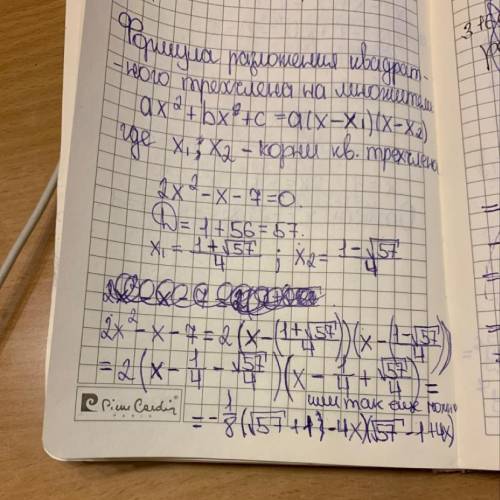 Формула разложения квадрат-
-ного трехчлена на множители
ax² + bx² + c = a(x-x₁)(x-x₂)
где x₁; x₂ - корни кв. трехчлена
2x² - x - 7 = 0.
D = 1 + 56 = 57.
x₁ = (1+√57)/4 ; x₂ = (1-√57)/4
2x² - x - 7 = 2(x - (1+√57)/4)(x - (1-√57)/4)
= 2(x - 1/4 - √57/4)(x - 1/4 + √57/4) =
или так еще можно
= -1/8(√57 + 1 - 4x)(√57 - 1 + 4x)
Pierre Cardin
PARIS